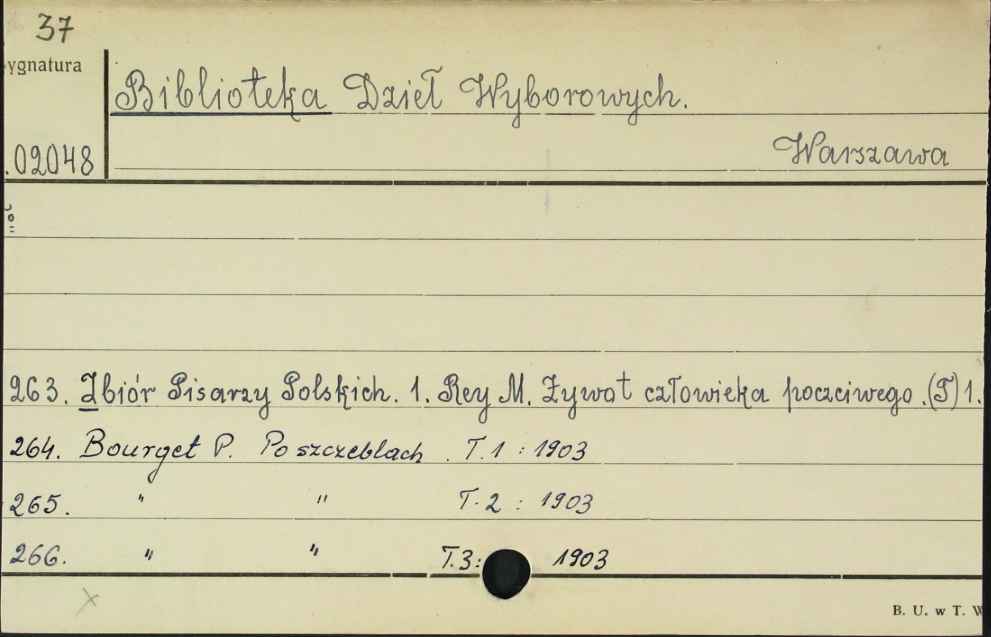 37
ygnatura
Biblioteka Dzieł Wyborowych.
.02048
Warszawa
263. Zbiór Pisarzy Polskich. 1. Rey M. Żywot człowieka poczciwego. (T) 1.
264. Bourget P. Po szczeblach. T. 1 : 1903
265. " " T. 2 : 1903
266. " " T. 3 : 1903
B. U. w T. W